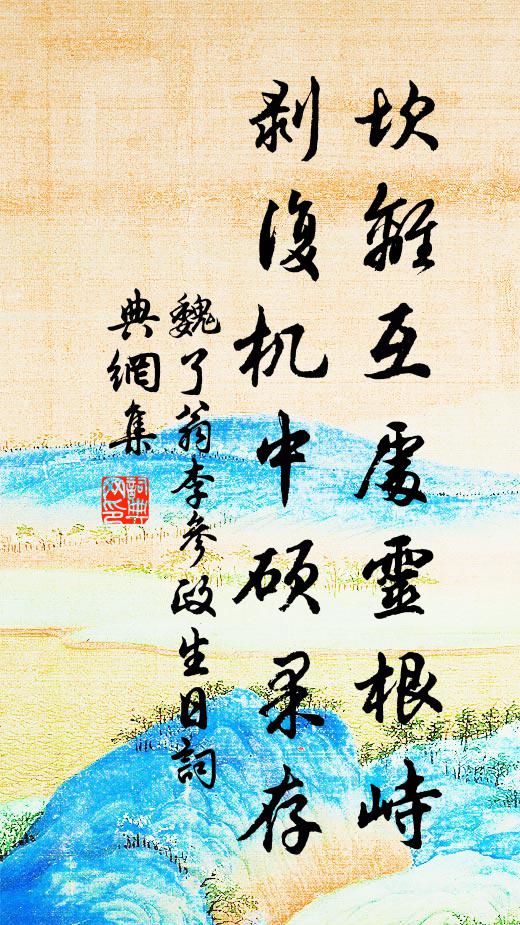 坎離互處靈根峙
剥復机中硕果存
魏了翁李參政生日詞
典網集
詞典